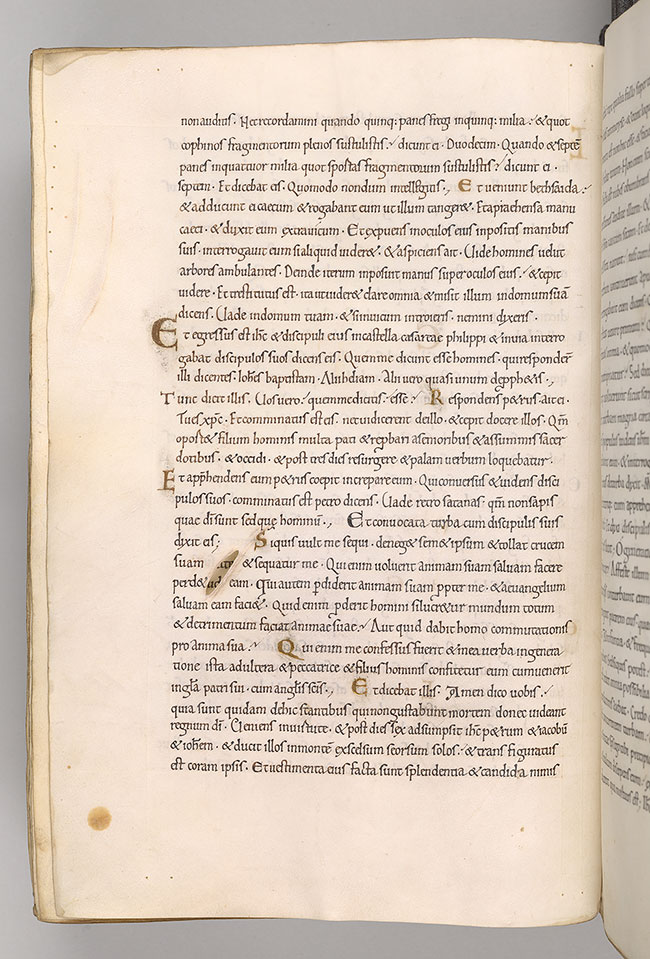 non auditis. Nec recordamini quando quinq: panes fregi inquinq: milia? & quot
cophinos fragmentorum plenos sustulistis? dicunt ei. Duodecim. Quando & septē
panes inquattuor milia quot sportas fragmentorum sustulistis? dicunt ei.
septem. Et dicebat eis. Quomodo nondum intellegitis., Et veniunt bethsaida.
& adducunt ei caecum & rogabant eum ut illum tanger&. Et apraehensa manu
caeci. & duxit eum extra vicum. Et expuens inoculos eius inpositis manibus
suis. interrogavit eum si aliquid vider&. & aspiciens ait. Uide homines velut
arbores ambulantes. Deinde iterum inposuit manus super oculos eius. & cepit
videre. Et restitutus est. ita ut vider& clare omnia & misit illum indomum suā
dicens. Uade indomum tuam. & si in vicum introieris. nemini dixeris.
Et egressus est ihc & discipuli eius incastella caesareae philippi & in via interro
gabat discipulos suos dicens eis. Quem me dicunt esse homines. qui responder̄
illi dicentes. Iohēs baptistam. Alii heliam. Alii vero quasi unum de pph&is.,
Tunc dicit illis. Uos vero? quem me dicitis. esse? Respondens p&rus ait ei.
Tu es xp̄c. Et comminatus est eis. ne cui dicerent de illo. & cepit docere illos. Qm̄
oport& filium hominis multa pati & reprobari a senioribus & a summis sacer
dotibus. & occidi. & post tres dies resurgere & palam verbum loquebatur.
Et app̄hendens eum p&rus coepit increpare eum. Qui conversus & videns disci
pulos suos. comminatus est petro dicens. Uade retro satanas. qm̄ non sapis
quae di sunt sed que hominū., Et convocata turba cum discipulis suis
dixit eis; Si quis vult me sequi. deneg& sem&ipsum & tollat crucem
suam & sequatur me. Qui enim voluerit animam suam salvam facere
perd& eam. qui autem perdiderit animam suam ppter me. & aevangelium
salvam eam faci&. Quid enim proderit homini si lucr&ur mundum totum
& detrimentum faciat animae suae? Aut quid dabit homo commutationis
pro anima sua? Qui enim me confessus fuerit & mea verba in genera
tione ista adultera & peccatrice & filius hominis confitetur eum cum venerit
in gl̄a patris sui. cum angl̄is sc̄is., Et dicebat illis. Amen dico vobis.
quia sunt quidam de hic stantibus qui non gustabunt mortem donec videant
regnum di. veniens in virtute. & post dies sex adsumpsit ihc p&rum & iacobū
& iohēm. & ducit illos in montē excelsum seorsum solos. & transfiguratus
est coram ipsis. Et vestimenta eius facta sunt splendentia & candida nimis